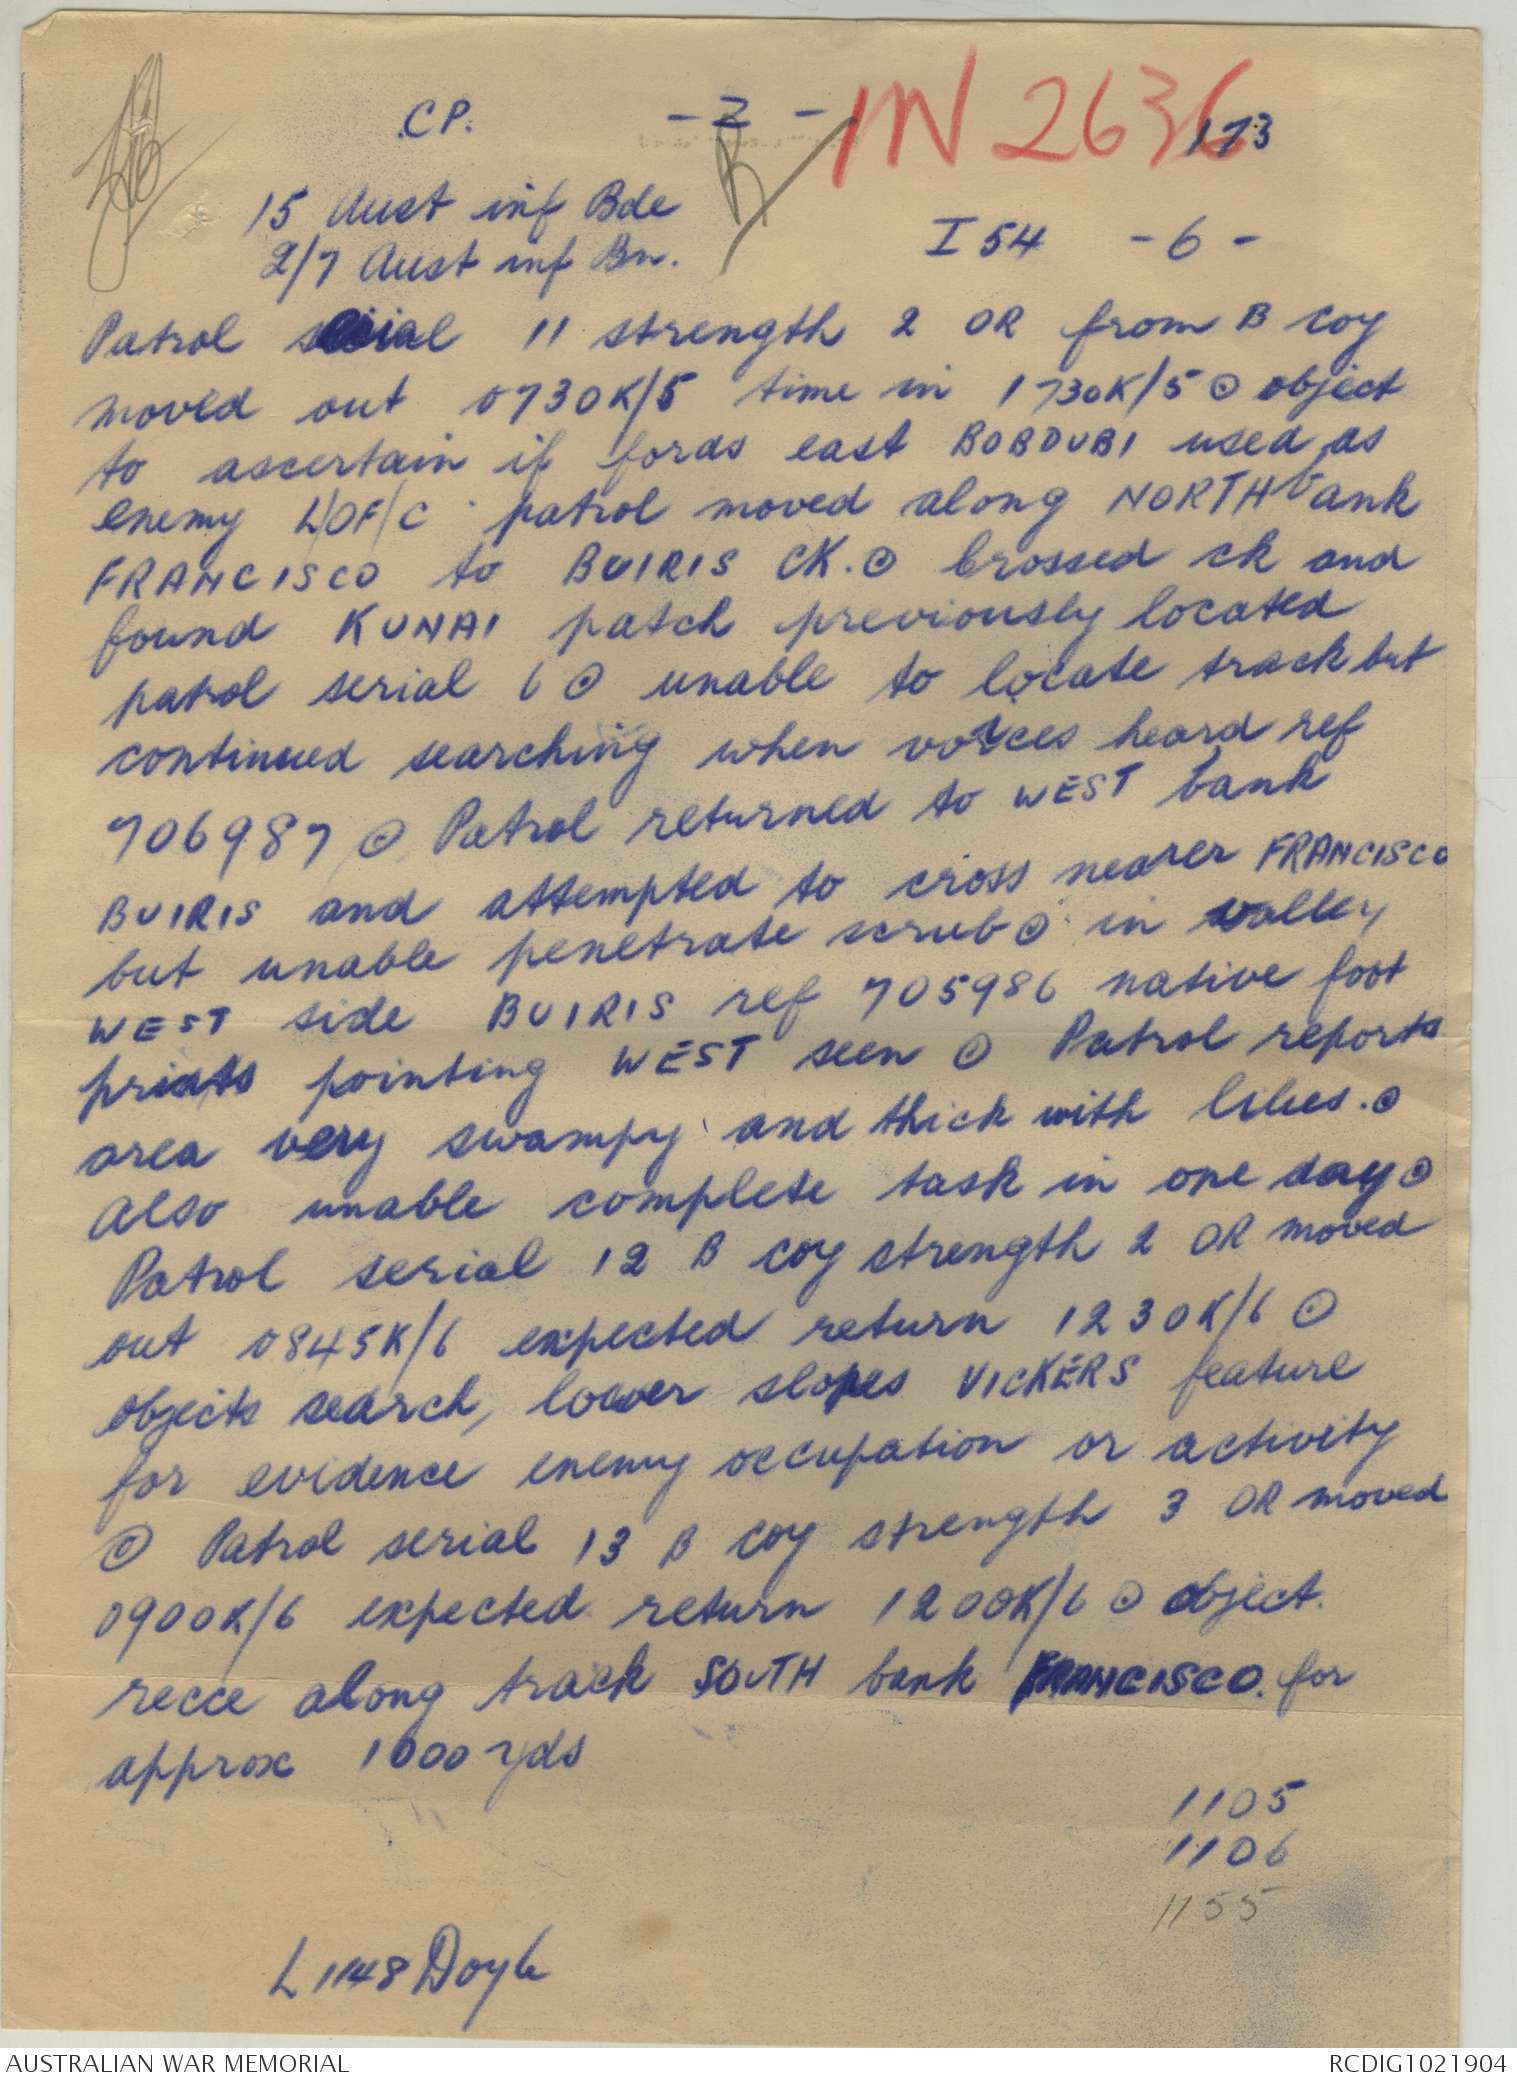 CP. - Z - IN 2636
173
15 Aust inf Bde
2/7 Aust inf Bn. I 54 - 6 -
Patrol serial 11 strength 2 OR from B coy
moved out 0730K/5 time in 1730K/5 © object
to ascertain if fords east BOBDUBI used as
enemy L/OF/C patrol moved along NORTH bank
FRANCISCO to BUIRIS CK. © Crossed ck and
found KUNAI patch previously located
patrol serial 6 © unable to locate track but
continued searching when voices heard ref
706987 © Patrol returned to WEST bank
BUIRIS and attempted to cross nearer FRANCISCO
but unable penetrate scrub © in valley
WEST side BUIRIS ref 705986 native foot
prints pointing WEST seen © Patrol reports
area very swampy and thick with lilies. ©
Also unable complete task in one day ©
Patrol serial 12 B coy strength 2 OR moved
out 0845K/6 expected return 1230K/6 ©
objects search, lower slopes VICKERS feature
for evidence enemy occupation or activity
© Patrol serial 13 B coy strength 3 OR moved
0900K/6 expected return 1200K/6 © object.
recce along track SOUTH bank FRANCISCO. for
approx 1000 yds
1105
1106
1155
L 1148 Doyle
AUSTRALIAN WAR MEMORIAL RCDIG1021904